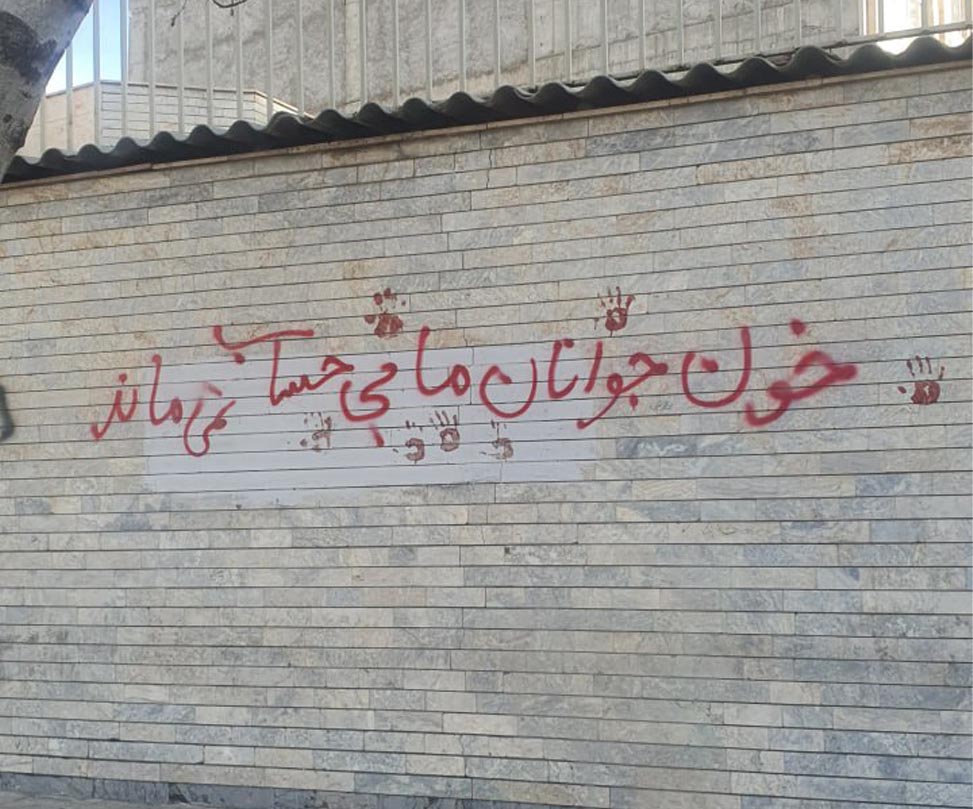 خون جوانان ما بی حساب نمی ماند